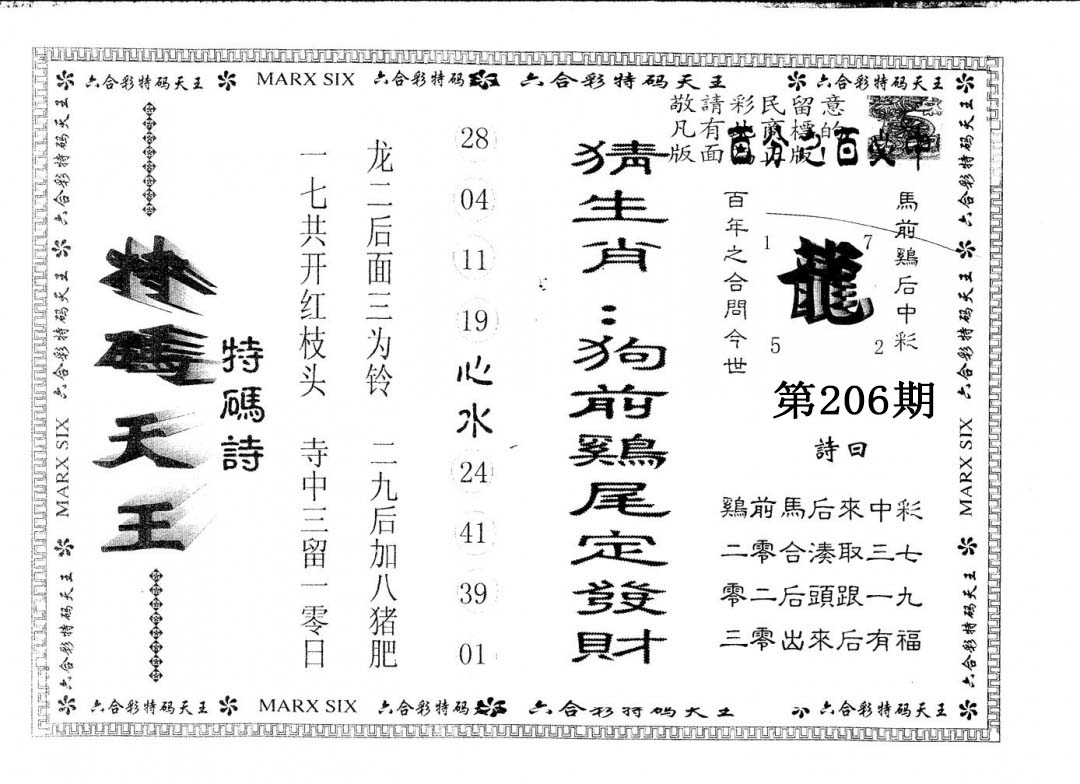 六合彩特码天王 MARX SIX 六合彩特码 六合彩特码天王 六合彩特码天王
敬請彩民留意
凡有
版面
百分之百
馬前鷄后中彩
龍
1
7
5
2
百年之合問今世
第206期
詩曰
鷄前馬后來中彩
二零合湊取三七
零二后頭跟一九
三零出來后有福
猜生肖：狗前鷄尾定發財
28
04
11
19
心水
24
41
39
01
龙二后面三为铃 二九后加八猪肥
一七共开红枝头 寺中三留一零日
特碼詩
特碼天王
六合彩特码天王 六合彩特码天王 MARX SIX 六合彩特码天王
六合彩特码天王 六合彩特码天王 MARX SIX 六合彩特码天王
六合彩特码天王 MARX SIX 六合彩特码 六合彩特码天王 六合彩特码天王